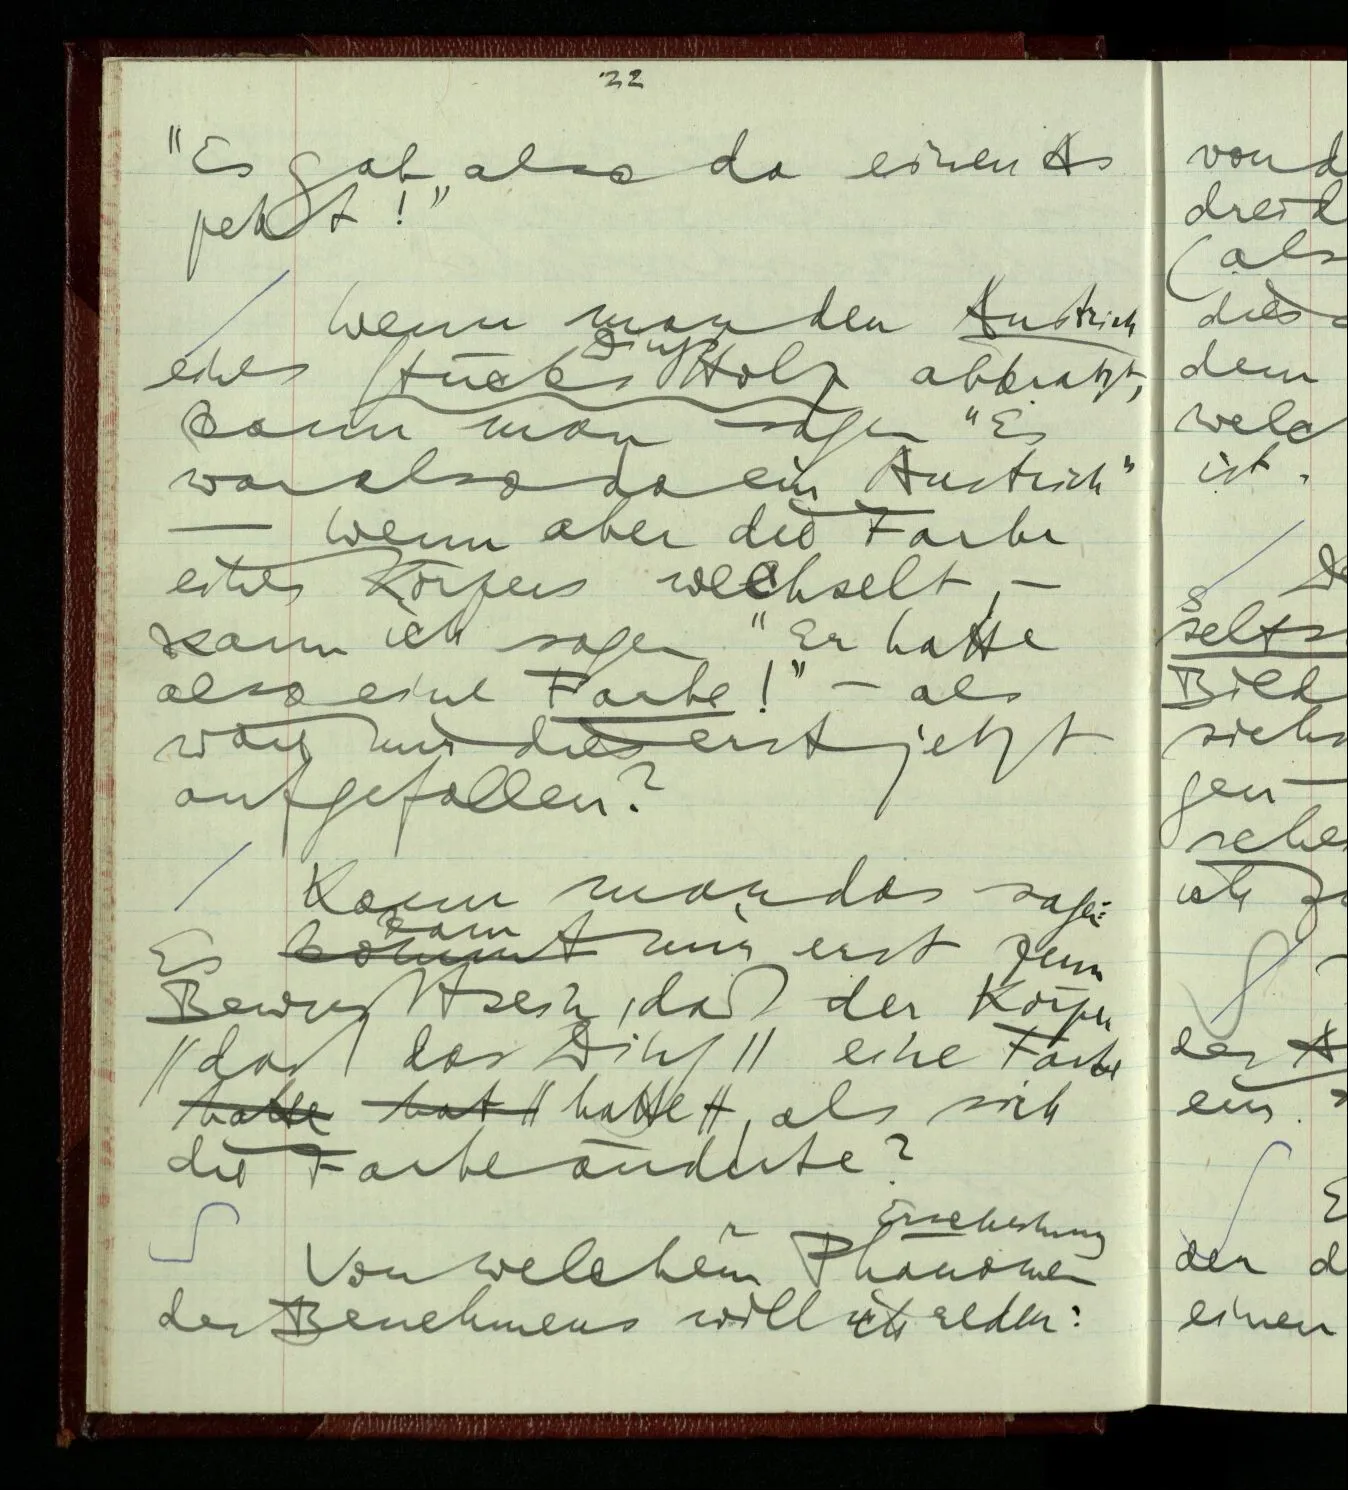 22
"Es gab also da einen As
pekt!"
Wenn man den Anstrich
Dings
eines Stücks Holz abkratzt,
kann man sagen "Es
war also da ein Anstrich"
— Wenn aber die Farbe
eines Körpers wechselt, –
kann ich sagen "Er hatte
also eine Farbe!" – als
wäre mir dies erst jetzt
aufgefallen?
Kann man das sagen:
kam
Es kommt mir erst zum
Bewußtsein, daß der Körper
// daß das Ding // eine Farbe
hatte hat // hatte //, als sich
die Farbe änderte?
Erscheinung
Von welchem Phänomen
des Benehmens will ich reden:
von d
dreid
(als
dies
dem
welc
ist.
selts
Bild
siehs
gen –
sehe
ich
der A
ein.
E
der d
einen